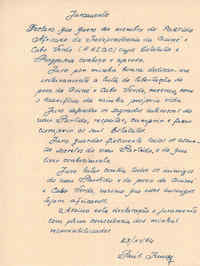 Juramento
Declaro que quero ser membro do Partido
Africano da Independência da Guiné e
Cabo Verde (PAIGC) cujos Estatutos e
Programa conheço e aprovo.
Juro por minha honra dedicar-me
inteiramente à luta de libertação do
povo da Guiné e Cabo Verde, mesmo com
o sacrifício da minha própria vida.
Juro defender os sagrados interesses do
meu Partido, respeitar, cumprir e fazer
cumprir os seus Estatutos.
Juro guardar
os secretos do meu Partido, de que
tiver conhecimento.
Juro lutar contra todos os inimigos
do meu Partido e do povo da Guiné
e Cabo Verde, mesmo que esses inimigos
sejam africanos.
Assino esta declaração e juramento
com plena consciência das minhas
responsabilidades